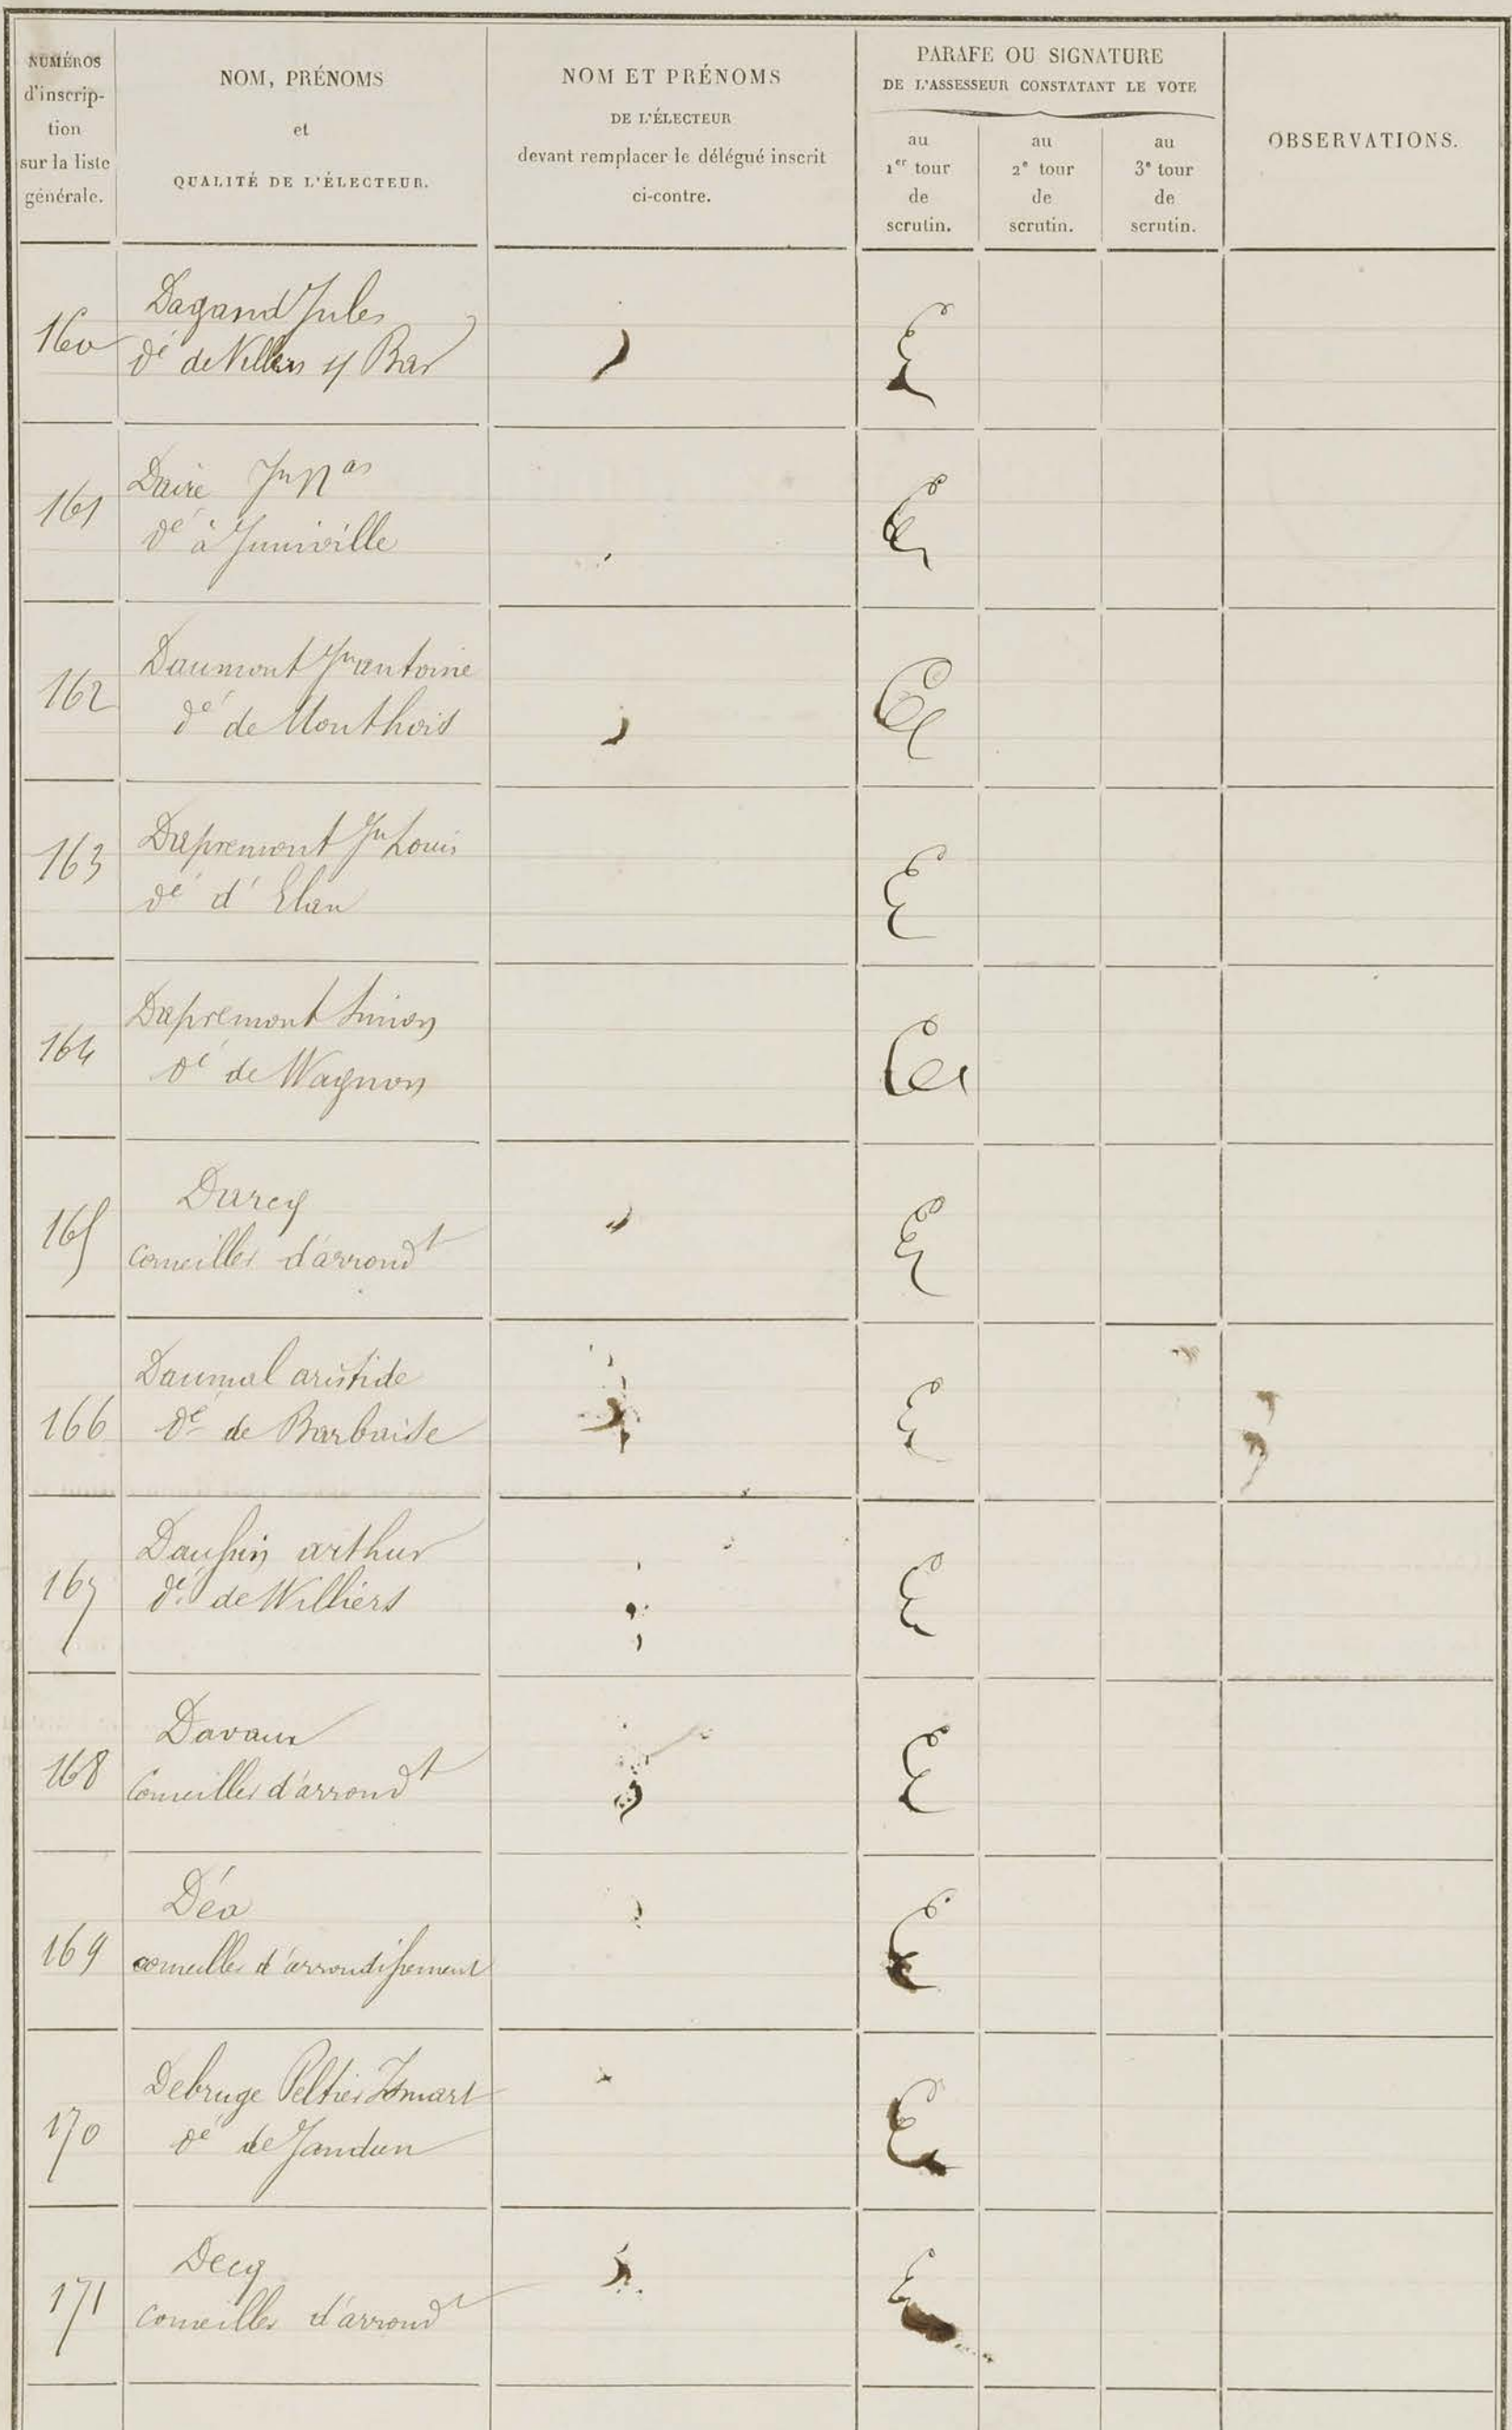 NUMÉROS
d'inscrip-
tion
sur la liste
générale.
NOM, PRÉNOMS
et
QUALITÉ DE L'ÉLECTEUR.
NOM ET PRÉNOMS
DE L'ÉLECTEUR
devant remplacer le délégué inscrit
ci-contre.
PARAFE OU SIGNATURE
DE L'ASSESSEUR CONSTATANT LE VOTE
au
1er tour
de
scrutin.
au
2e tour
de
scrutin.
au
3e tour
de
scrutin.
OBSERVATIONS.
160
Dagand Jules
dé de Villers s/ Bar
161
Daire Jn Nas
dé à Juniville
162
Daumont Jn antoine
dé de Monthois
163
Dapremont Jn Louis
dé d'Elan
164
Dapremont Simon
dé de Wagnon
165
Darcy
Conseiller d'arrondt
166
Daumal aristide
dé de Barbaise
167
Dauphin arthur
dé de Williers
168
Davaux
Conseiller d'arrondt
169
Déa
conseiller d'arrondissement
170
Debruge Peltier
dé de Jandun
171
Decq
Conseiller d'arrondt